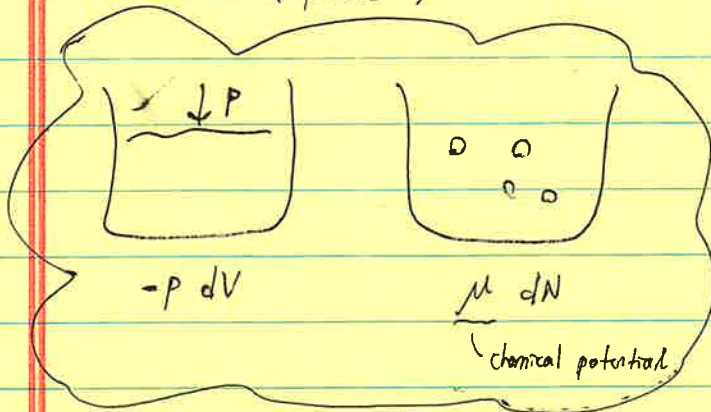 ↓ P
-P dV
μ dN
chemical potential